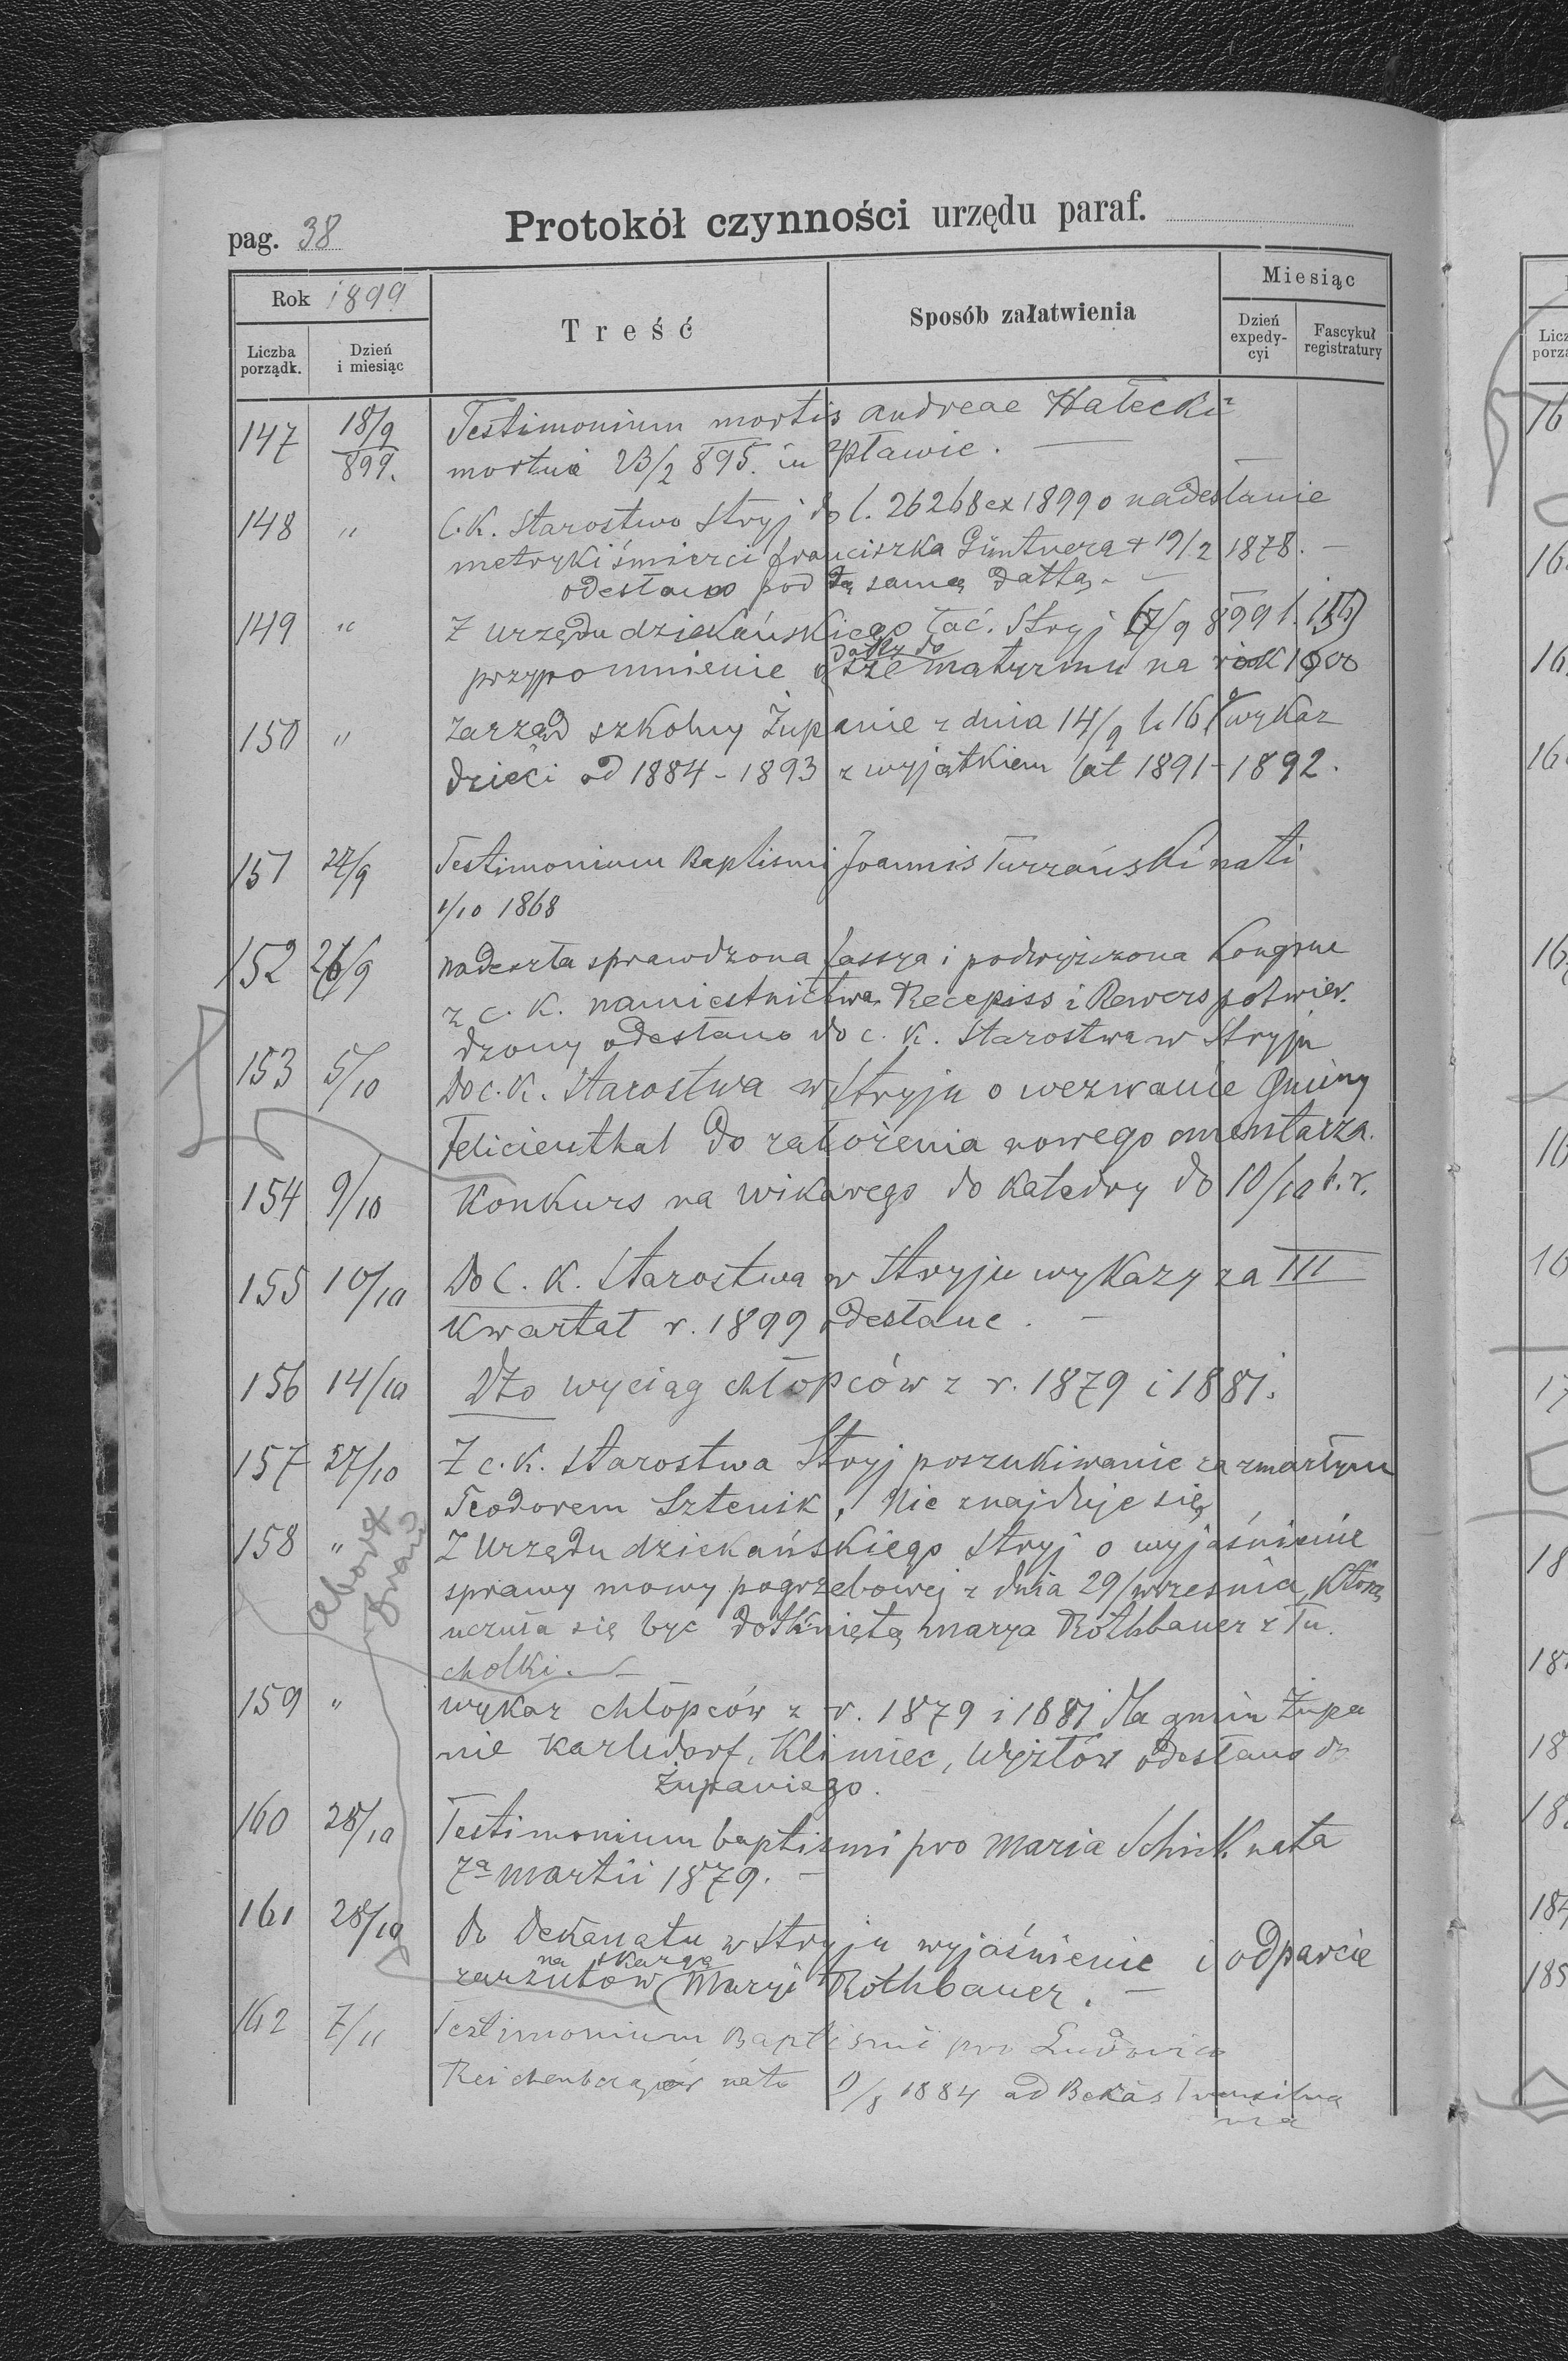 pag. 38
Protokół czynności urzędu paraf.
Rok 1899
Treść
Sposób załatwienia
Miesiąc
Liczba porządk.
Dzień i miesiąc
Dzień expedy-cyi
Fascykuł registratury
147 18/9 899. Testimonium mortis Andreae Hałecki
mortui 23/2 895. in Opławie.
148 " C.K. Starostwo Stryj do l. 26268 ex 1899 o nadesłanie
metryki śmierci Franciszka Güntnera + 19/2 1878. –
odesłano pod tą samą dattą. –
149 " Z urzędu dziekańskiego łać. Stryj 17/9 899 l.
przypomnienie o szematyzmu na rok 1900
daty do
150 " Zarząd szkolny Żupanie z dnia 14/9 l. 16 o wykaz
dzieci od 1884 – 1893 z wyjątkiem lat 1891 – 1892.
151 27/9 Testimonium Baptismi Joannis Turzański nati
1/10 1868
152 26/9 nadeszła sprawdzona fassya i podwyższona Kongrue
z c. k. namiestnictwa. Recepiss i Rewers potwier.
dzony odesłano do c. k. Starostwa w Stryju
153 5/10 Do c. K. Starostwa w Stryju o wezwanie Gminy
Felicienthal do założenia nowego cmentarza.
154 9/10 Konkurs na wikarego do Katedry do 10/10 b. r.
155 10/10 Do C. K. Starostwa w Stryju wykazy za III
kwartał r. 1899 odesłane. –
156 14/10 Dto wyciąg chłopców z r. 1879 i 1881.
157 27/10 Z c. K. Starostwa Stryj poszukiwanie za zmarłym
Teodorem Sztenik, Nie znajduje się
158 " Z Urzędu dziekańskiego Stryj o wyjaśnienie
sprawy mowy pogrzebowej z dnia 29/września, którą
uczuła się być dotkniętą Marya Rothbauer z Tu.
cholki. –
159 " wykaz chłopców z r. 1879 i 1881 dla gmin Żupa
nie Karlsdorf, Klimiec, Wyżłów odesłano do
Żupaniego.
160 28/10 Testimonium baptismi pro Maria Schick nata
7a martii 1879. –
161 28/10 do Dekanatu w Stryju wyjaśnienie i odparcie
na skargę
zarzutów (Maryi Rothbauer. –
162 7/11 Testimonium Baptismi pro Ludovico
Reichenberger nato 9/8 1884 ad Bekás Transilva
nia